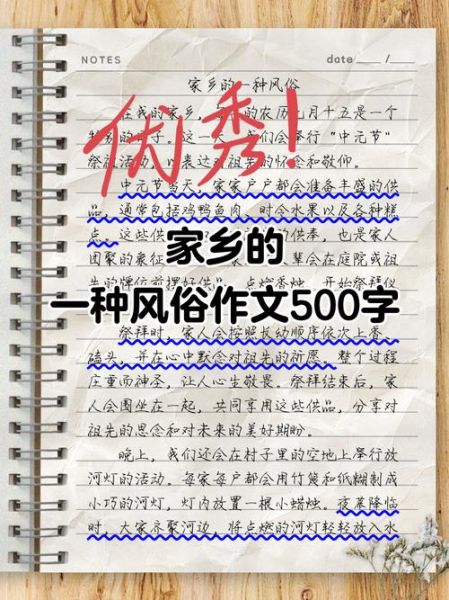 NOTES
date ___/___
家乡的一种风俗
优秀!
在我的家乡，的农历七月十五是一个
特别的日子。这一我们会举行“中元节”
祭祖活动，以表达对祖先的怀念和敬仰。
中元节当天，家家户户都会准备丰盛的供
品，通常包括鸡鸭鱼肉、时令水果以及各种糕
点。这些供的供奉，也是家人
家乡的
团聚的象征辈会在庭院或祖
先的牌位前摆好供点燃香烛，开始祭拜仪
一种风俗作文500字
祭拜时，家人会按照长幼顺序依次上香、
磕头，并在心中默念对祖先的祈愿。整个过程
庄重而神圣，让人心生敬畏。祭拜结束后，家
人会围坐在一起，共同享用这些供品，分享对
祖先的思念和对未来的美好期盼。
晚上，我们还会在村子里的空地上举行放
河灯的活动。每家每户都会用竹篾和纸糊制成
小巧的河灯，灯内放置一根小蜡烛。夜幕降临
时，大家齐聚河边，将点燃的河灯轻轻放入水